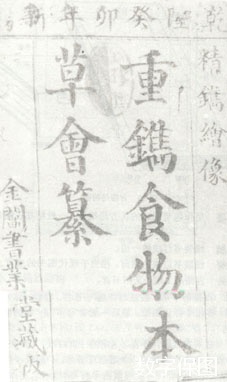 乾隆癸卯年新
精鐫繪像
重鐫食物本
草會纂
金閶書業堂藏板